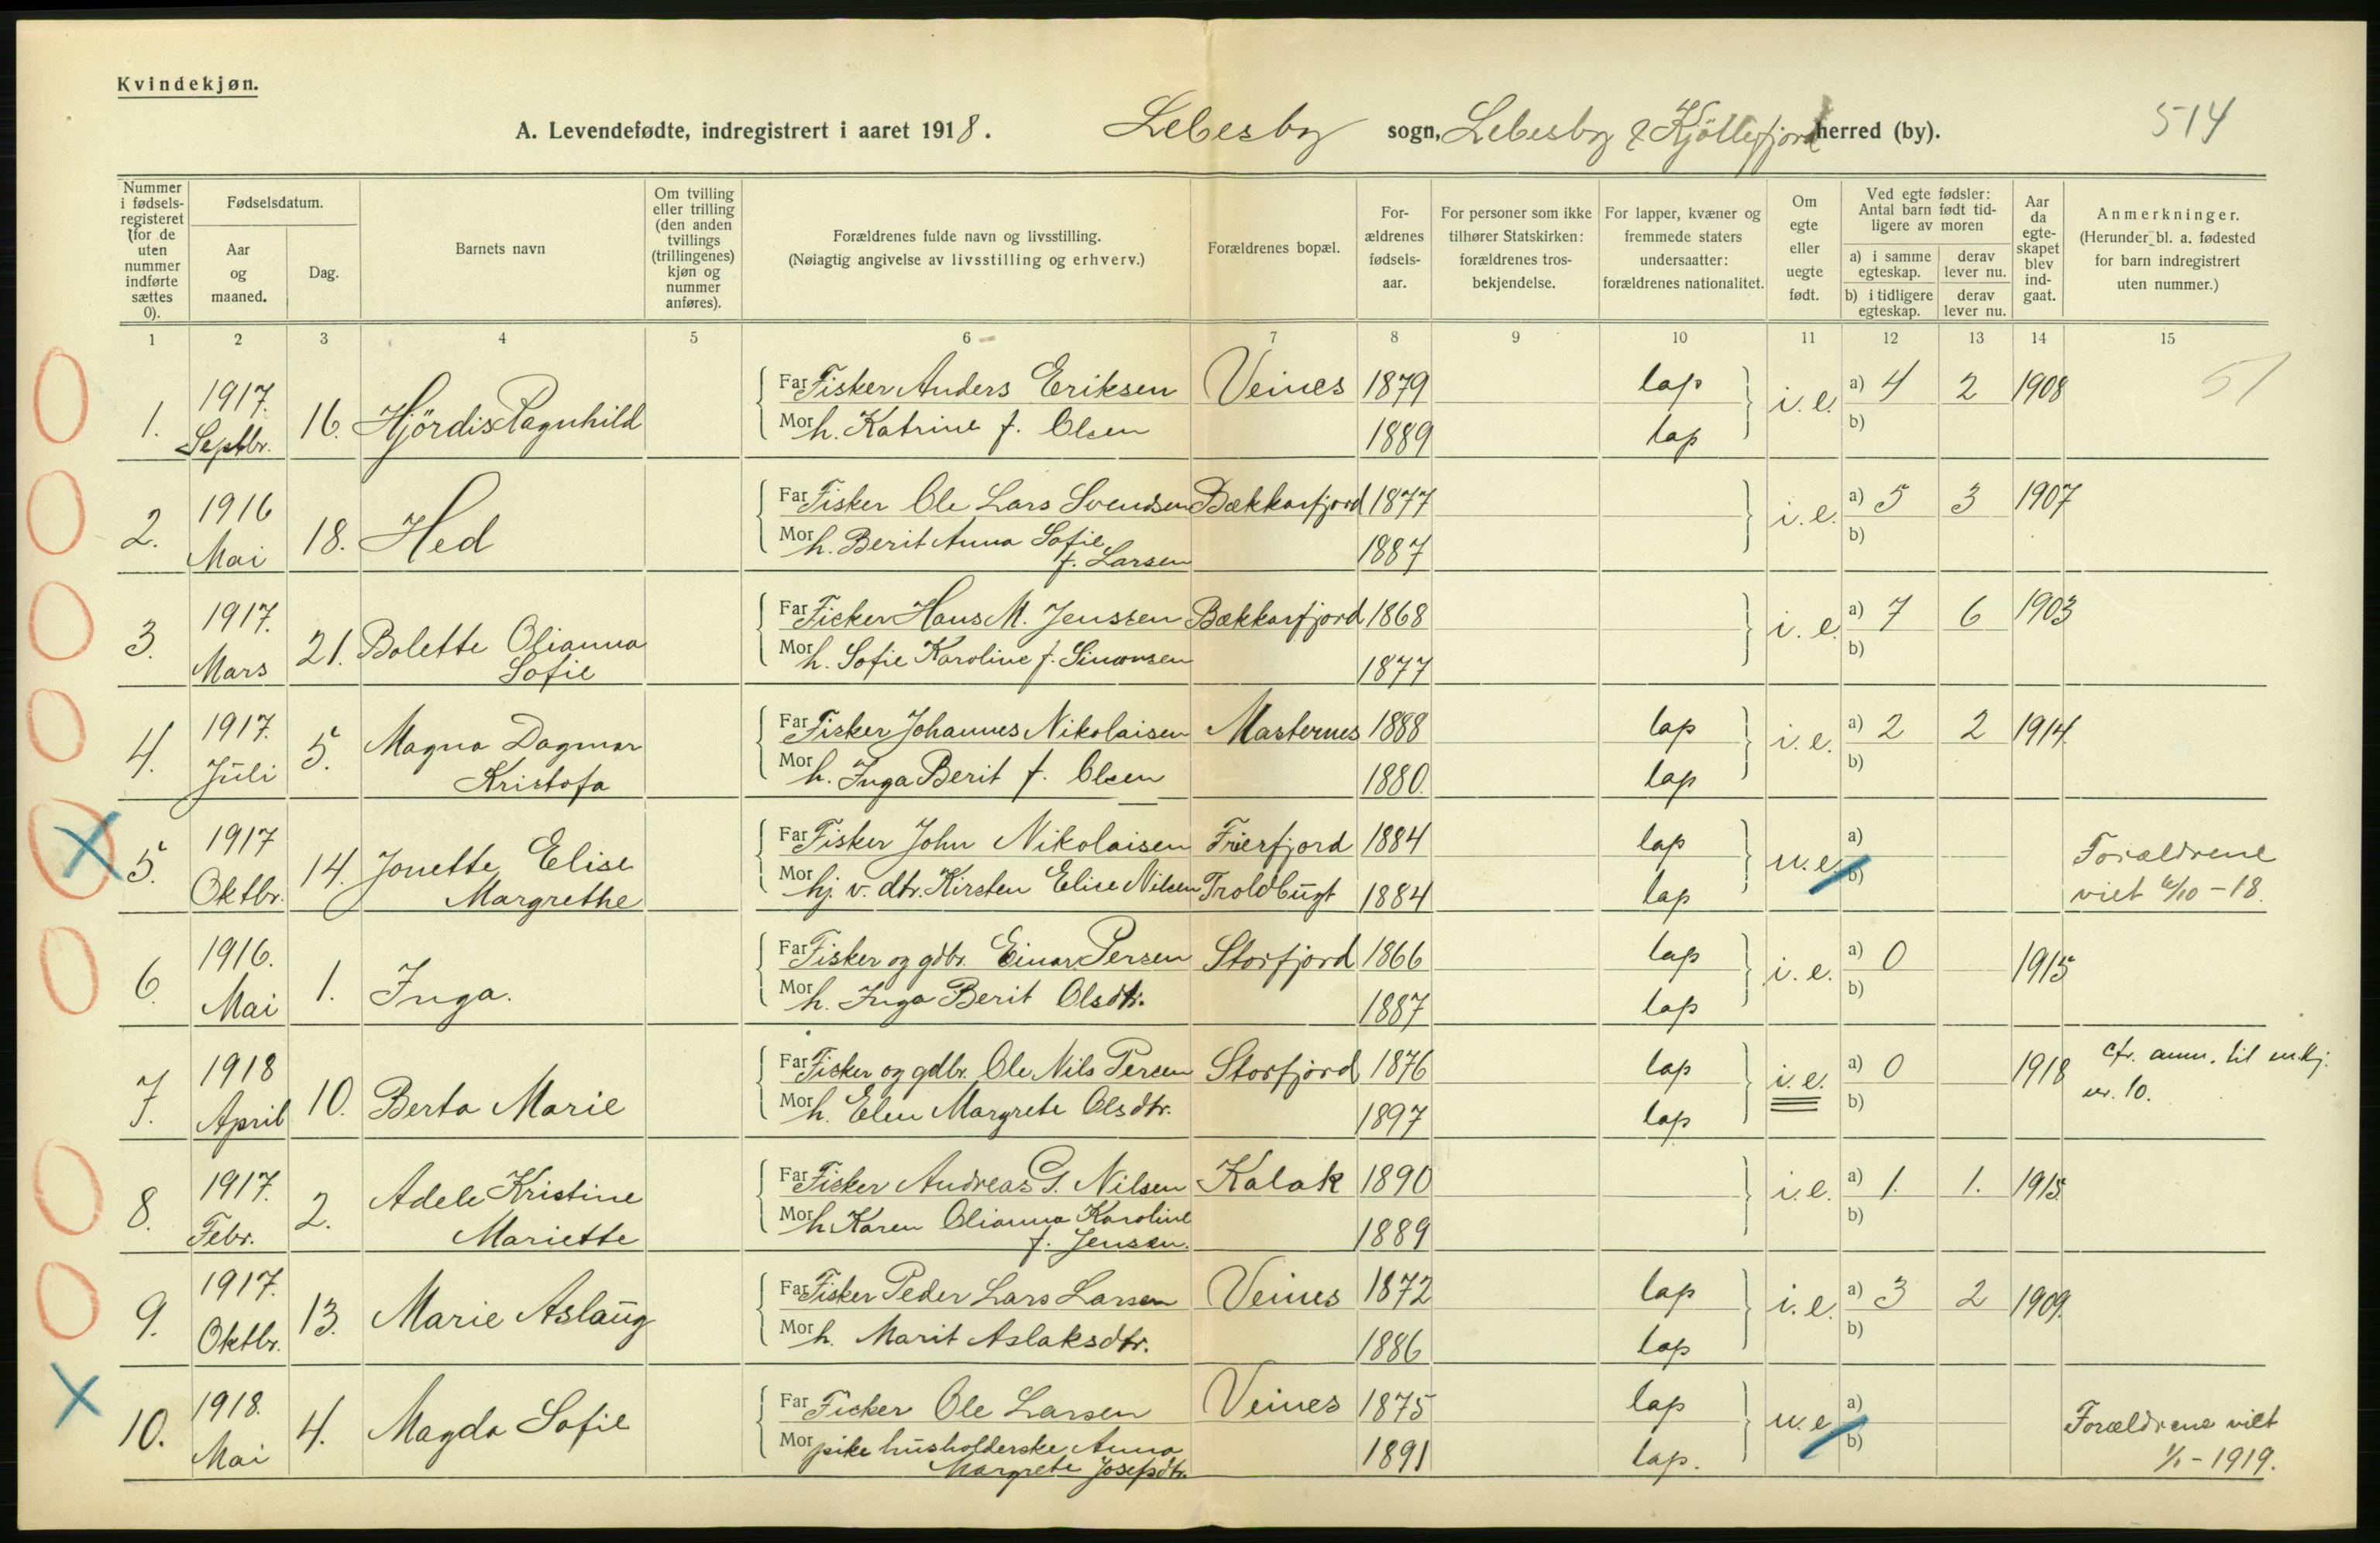 Kvindekjøn.
A. Levendefødte, indregistrert i aaret 1918. Lebesby sogn, Lebesby & Kjöllefjord herred (by). 514
Nummer i fødselsregisteret (for de uten nummer indførte sættes 0).
Fødselsdatum.
Aar og maaned.
Dag.
Barnets navn
Om tvilling eller trilling (den anden tvillings (trillingenes) kjøn og nummer anføres).
Forældrenes fulde navn og livsstilling. (Nøiagtig angivelse av livsstilling og erhverv.)
Forældrenes bopæl.
For-ældrenes fødsels-aar.
For personer som ikke tilhører Statskirken: forældrenes tros-bekjendelse.
For lapper, kvæner og fremmede staters undersaatter: forældrenes nationalitet.
Om egte eller uegte født.
Ved egte fødsler: Antal barn født tid-ligere av moren
a) i samme egteskap. derav lever nu.
b) i tidligere egteskap. derav lever nu.
Aar da egte-skapet blev ind-gaat.
Anmerkninger. (Herunder bl. a. fødested for barn indregistrert uten nummer.)
1 2 3 4 5 6 7 8 9 10 11 12 13 14 15
1. 1917. Septbr. 16. Hjördis Ragnhild
Far Fisker Anders Eriksen Veines 1879 lap i.e. a) 4 2 1908 51
Mor h. Katrine f. Olsen 1889 lap b)
2. 1916 Mai 18. Hed
Far Fisker Ole Lars Svendsen Bækkarfjord 1877 i.e. a) 5 3 1907
Mor h. Berit Anna Sofie f. Larsen 1887 b)
3. 1917. Mars 21. Bolette Olianna Sofie
Far Fisker Hans M. Jenssen Bækkarfjord 1868 i.e. a) 7 6 1903
Mor h. Sofie Karoline f. Simonsen 1877 b)
4. 1917. Juli 5. Magna Dagmar Kristofa
Far Fisker Johannes Nikolaisen Masternes 1888 lap i.e. a) 2 2 1914.
Mor h. Inga Berit f. Olsen 1880. lap b)
5. 1917 Oktbr. 14. Jonette Elise Margrethe
Far Fisker John Nikolaisen Frierfjord 1884 lap u.e. a) Forældrene
Mor hj. v. dtr. Kirsten Elise Nilsen Troldbugt 1884 lap b) viet 6/10-18.
6. 1916. Mai 1. Inga.
Far Fisker og gdbr. Einar Persen Storfjord 1866 lap i.e. a) 0 1915
Mor h. Inga Berit Olsdtr. 1887 lap b)
7. 1918 April 10. Berta Marie
Far Fisker og gdbr. Ole Nils Persen Storfjord 1876 lap i.e. a) 0 1918 cfr. anm. til m.kj.
Mor h. Elen Margrete Olsdtr. 1897 lap b) nr. 10.
8. 1917. Febr. 2. Adele Kristine Mariette
Far Fisker Andreas G. Nilsen Kalak 1890 i.e. a) 1. 1. 1915
Mor h. Karen Olianna Karoline f. Jensen. 1889 b)
9. 1917. Oktbr. 13. Marie Aslaug
Far Fisker Peder Lars Larsen Veines 1872 lap i.e. a) 3 2 1909.
Mor h. Marit Aslaksdtr. 1886 lap b)
10. 1918. Mai 4. Magda Sofie
Far Fisker Ole Larsen Veines 1875 lap u.e. a) Forældrene viet
Mor pike husholderske Anna Margrete Josefsdtr. 1891 lap. b) 1/1-1919.